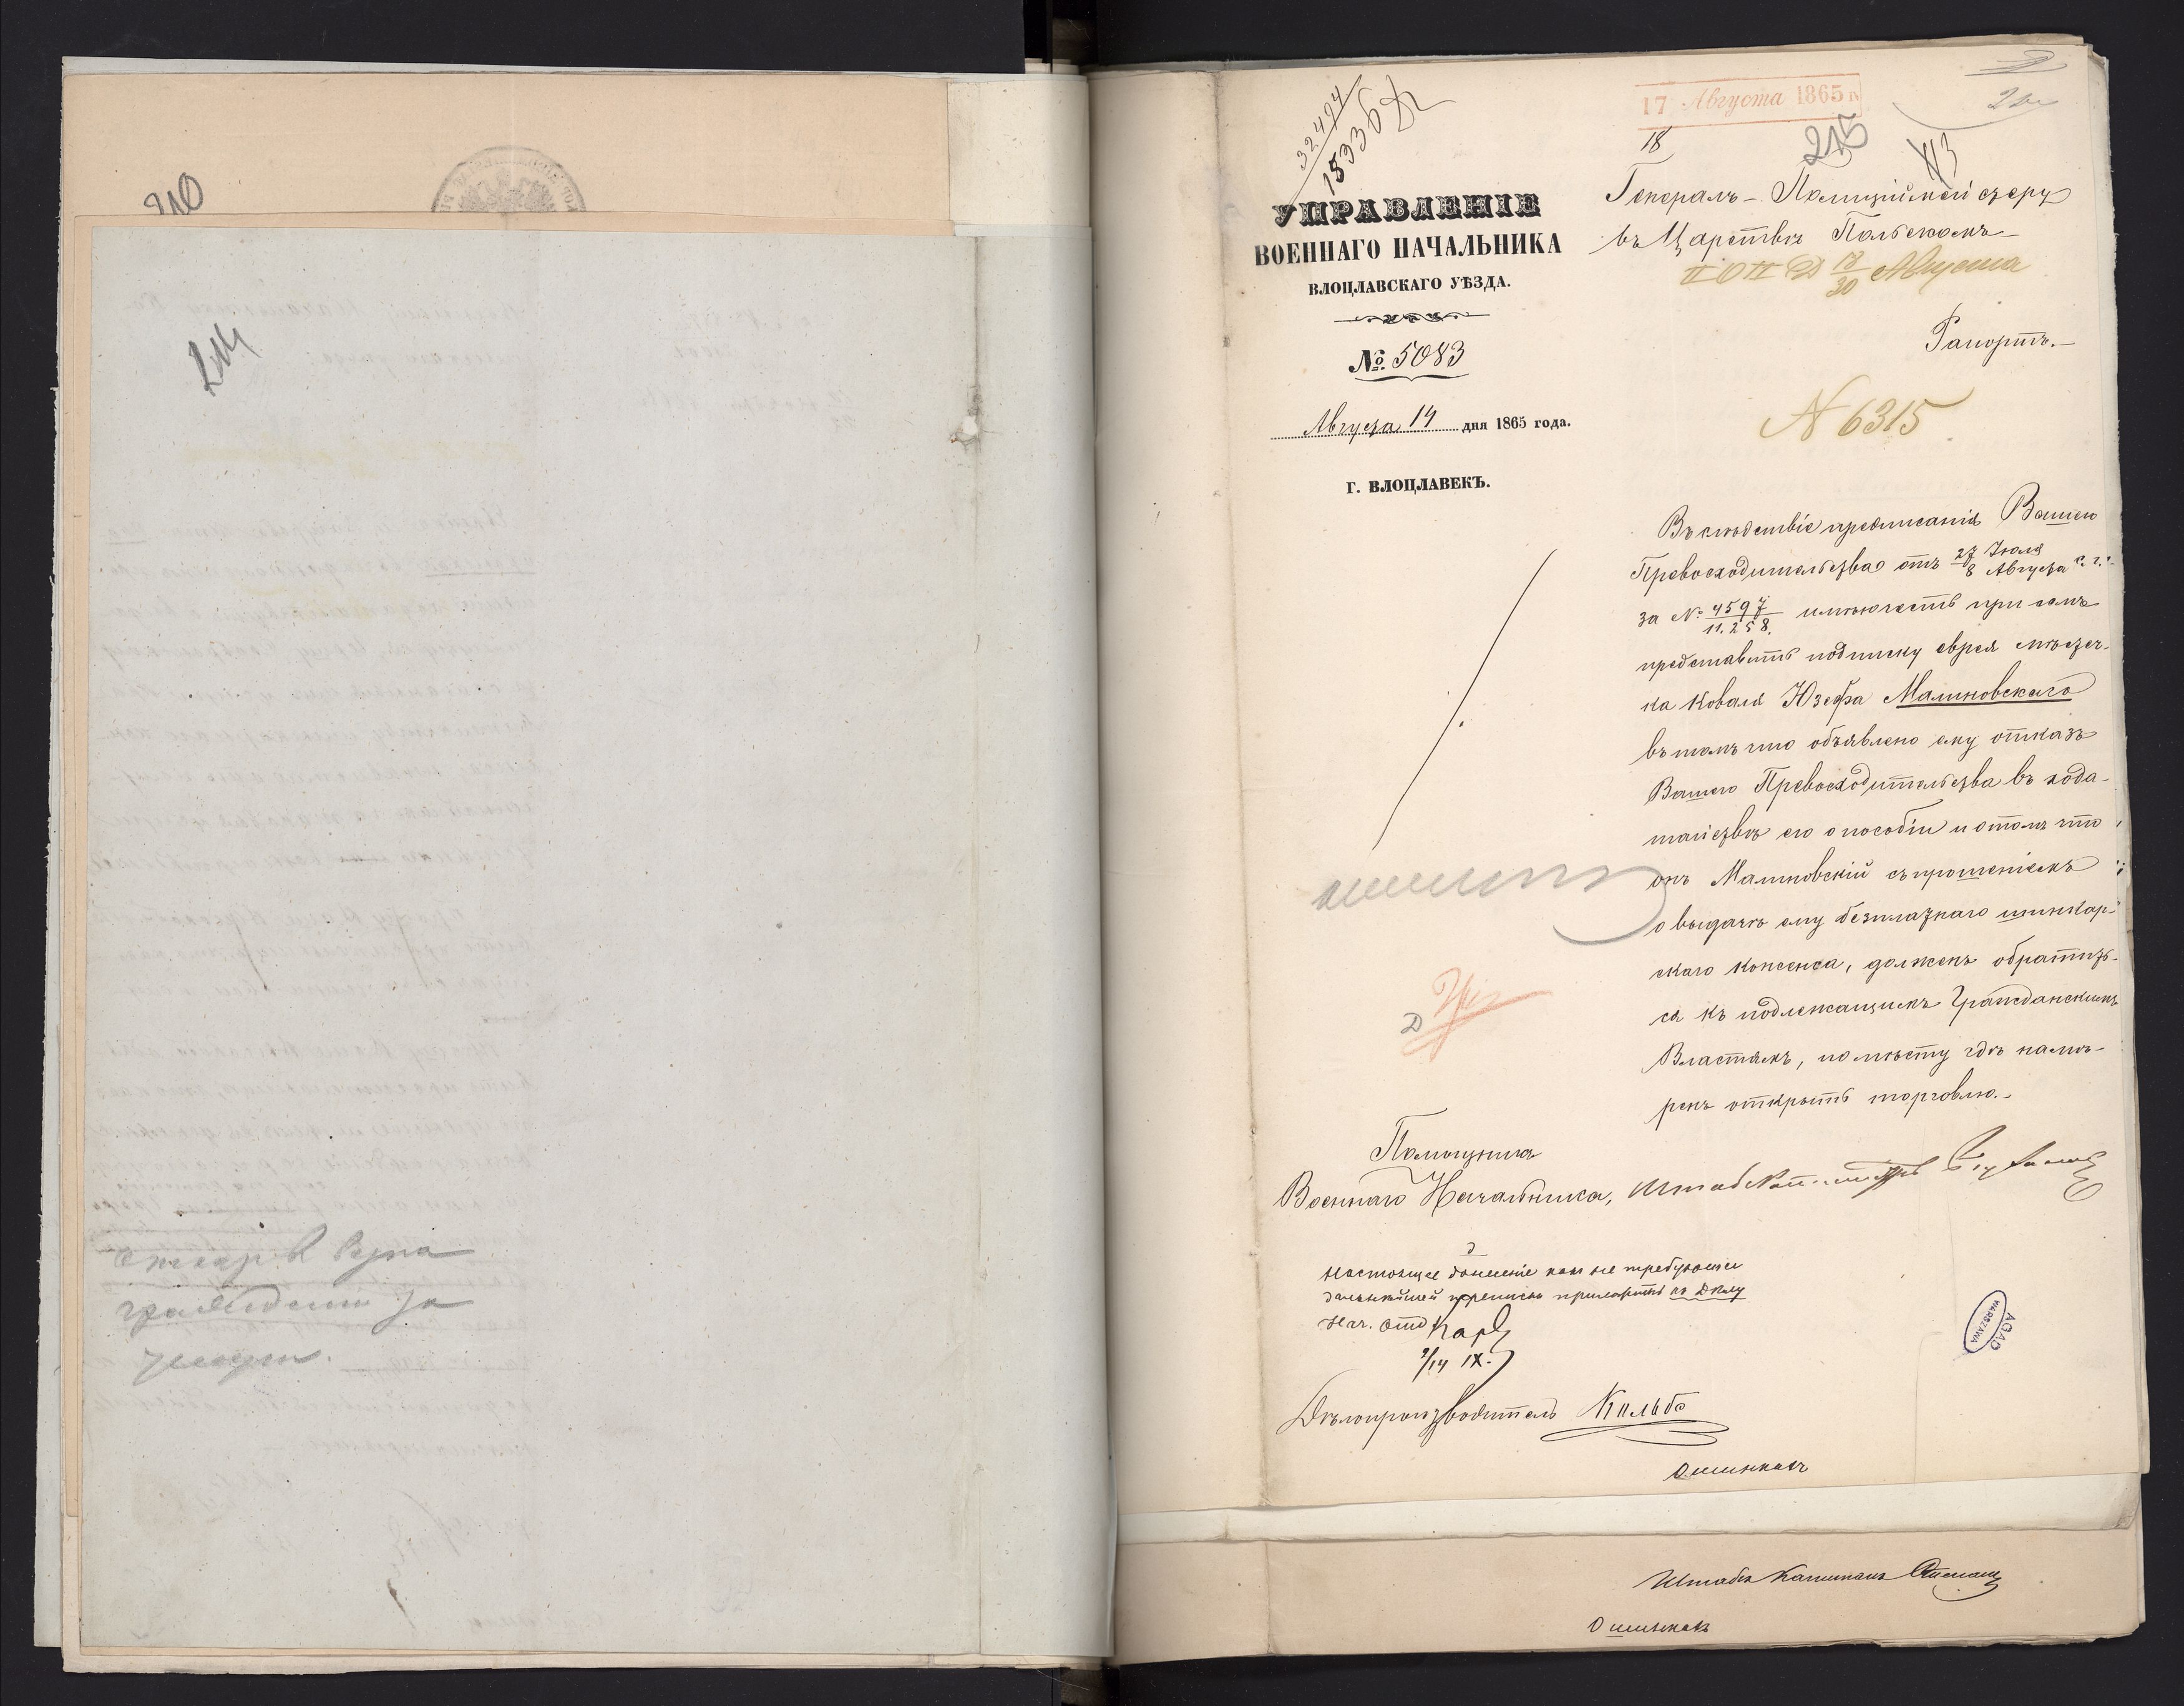 210
214
17 Августа 1865 г.
18
32494
15336
215
113
УПРАВЛЕНІЕ
ВОЕННАГО НАЧАЛЬНИКА
ВЛОЦЛАВСКАГО УѢЗДА.
№ 5083
Августа 14 дня 1865 года.
Г. ВЛОЦЛАВЕКЪ.
Генералъ-Полиціймейстеру
въ Царствѣ Польскомъ
18/30 Августа
Рапортъ.
N 6315
Въ слѣдствіе предписанія Вашего
Превосходительства отъ 27 Іюля / 8 Августа с. г.
за № 4597/11.258. имѣю честь при семъ
представить подписку еврея мѣстеч-
ка Коваля Юзефа Малиновскаго
въ томъ что объявлено ему отказъ
Вашего Превосходительства въ хода-
тайствѣ его о пособіи и отомъ что
онъ Малиновскій съ прошеніемъ
о выдачѣ ему безплатнаго шинкар-
скаго консенса, долженъ обратить-
ся къ подлежащимъ Гражданскимъ
Властямъ, по мѣсту гдѣ намѣ-
ренъ открыть торговлю.
Помощникъ
Военнаго Начальника, Штабсъ-Капитанъ
Настоящее донесеніе какъ не требующее
дальнѣйшей переписки пріобщить къ дѣлу
Нач. Отд.
2/14 IX.
Дѣлопроизводитель
AGAD
WARSZAWA
Штабсъ Капитанъ